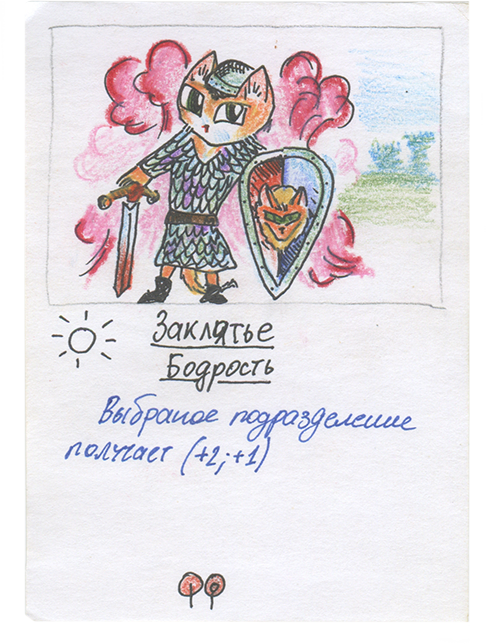 Заклятье
Бодрость
Выбраное подразделение
получает (+2; +1)